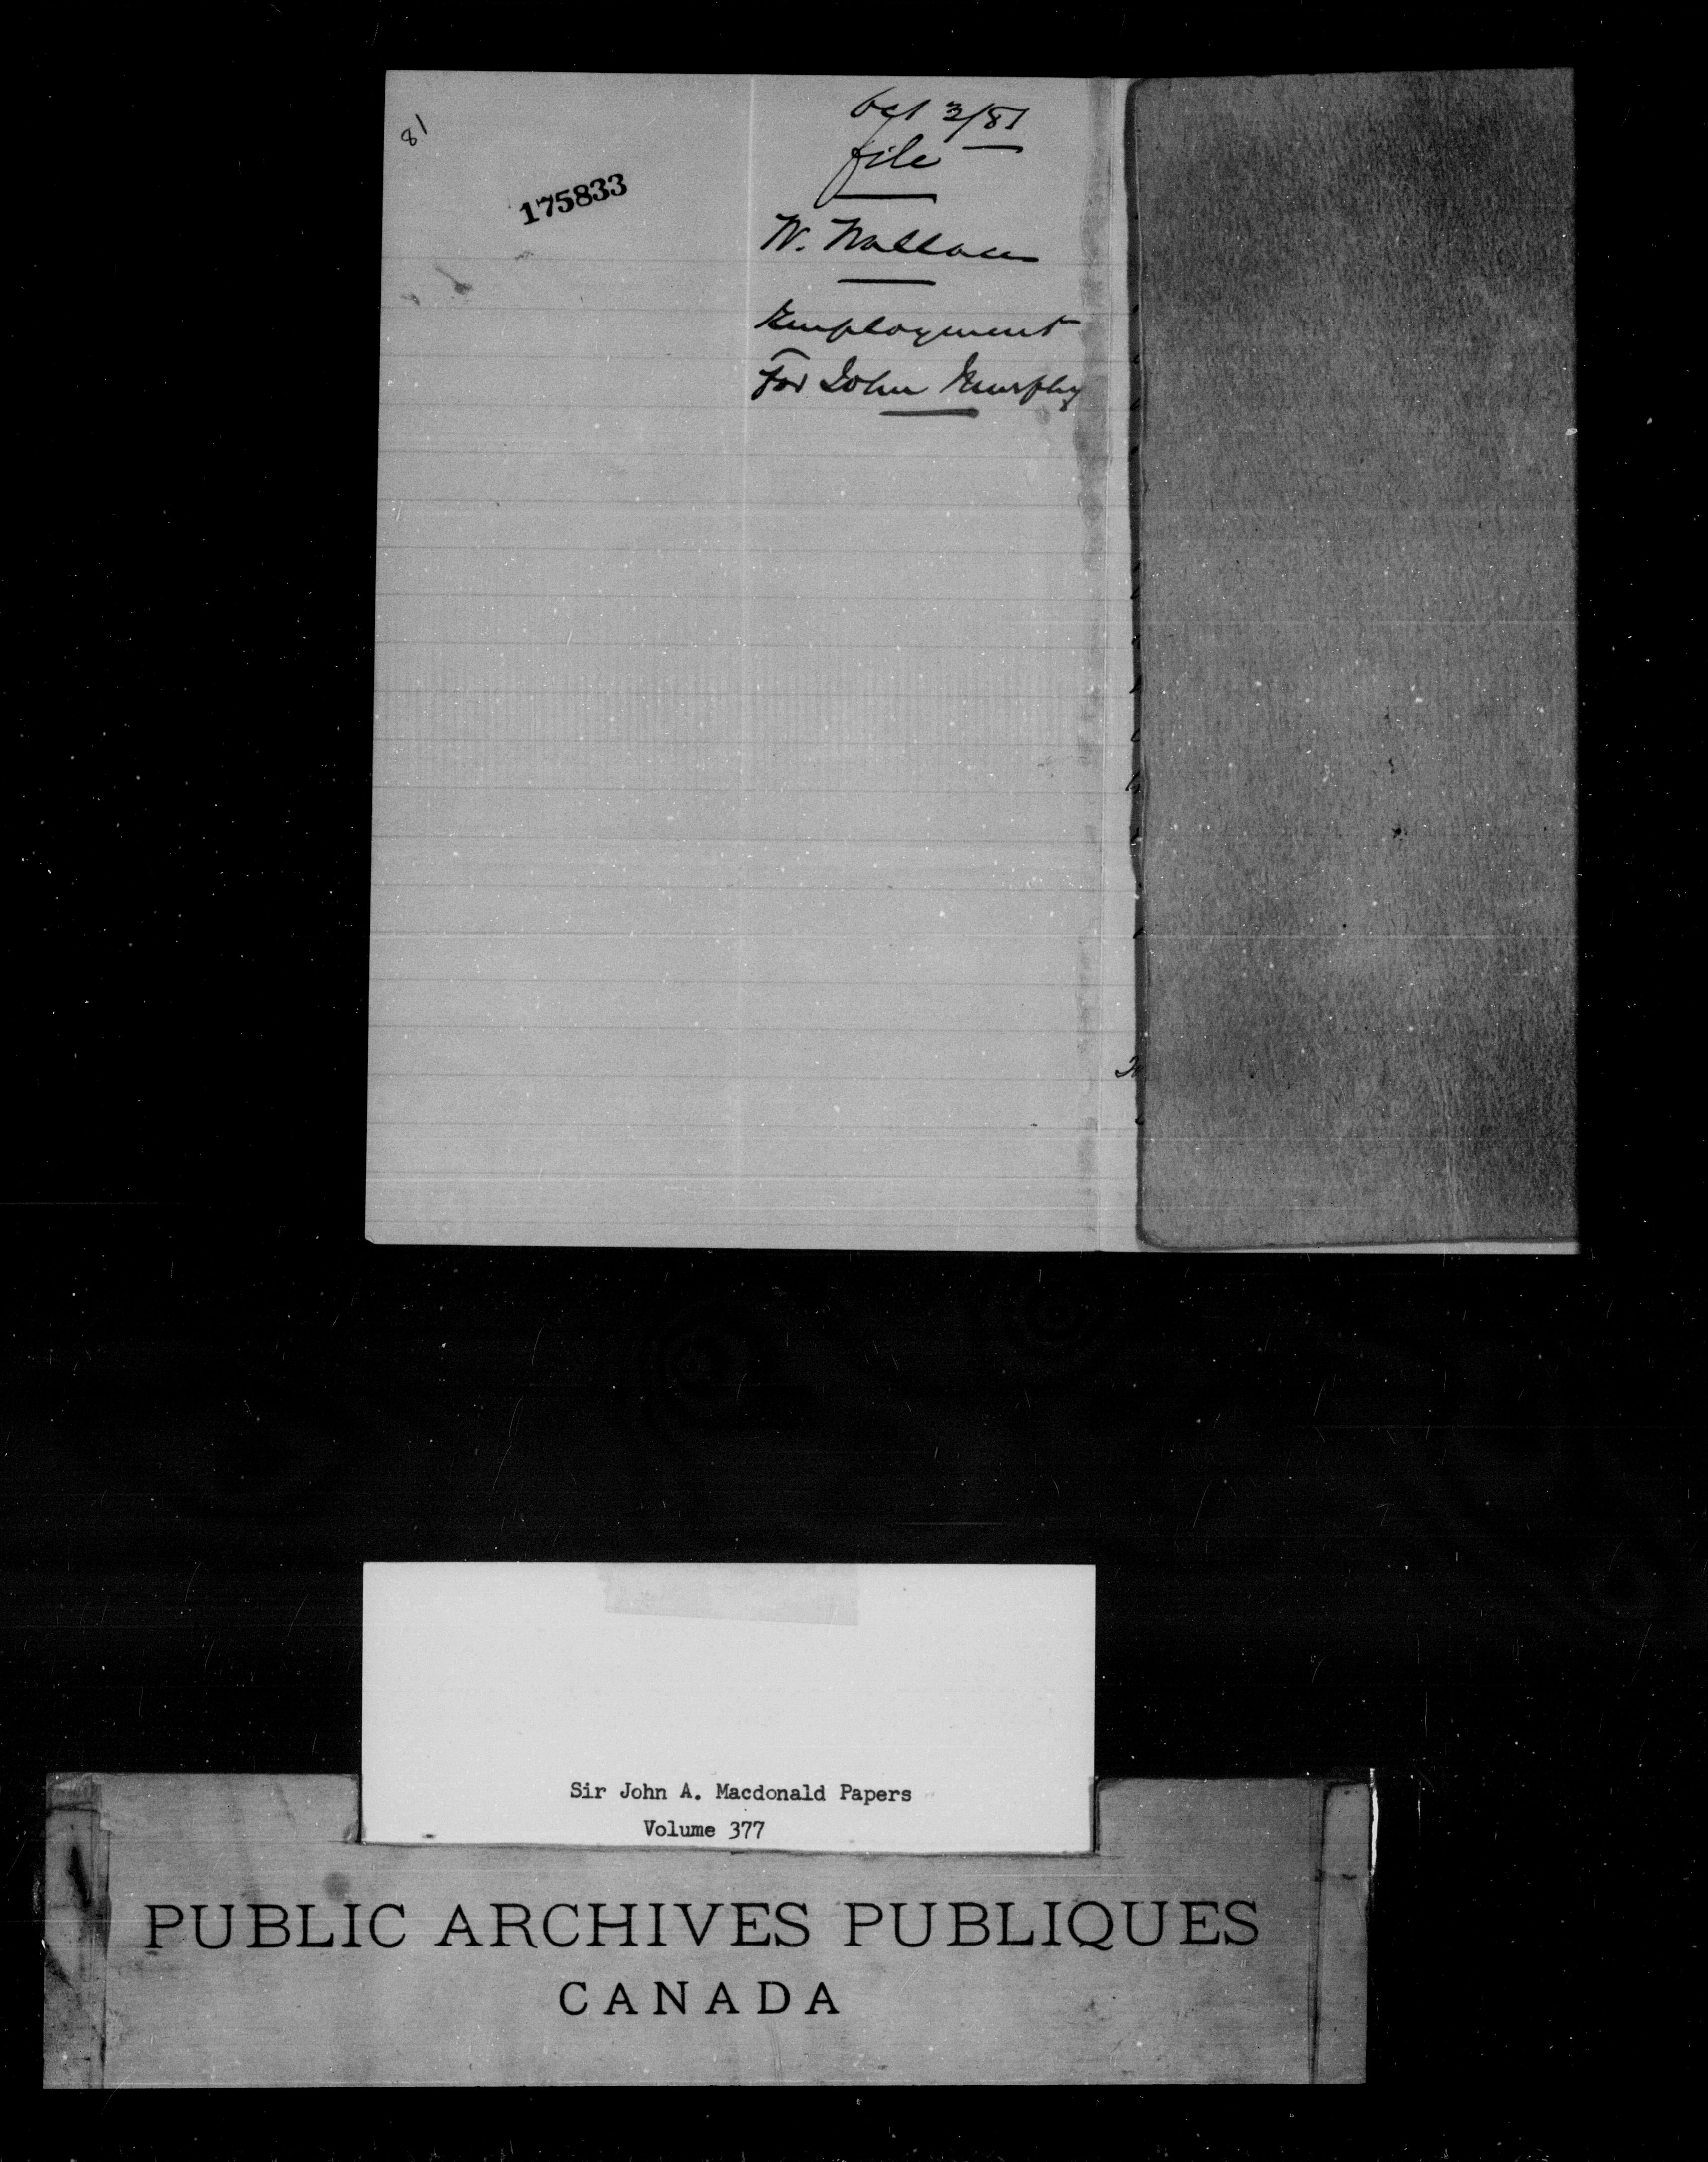 81
175833
Oct 3/81
file
W. Wallace
Employment
For John Murphy
Sir John A. Macdonald Papers
Volume 377
PUBLIC ARCHIVES PUBLIQUES
CANADA